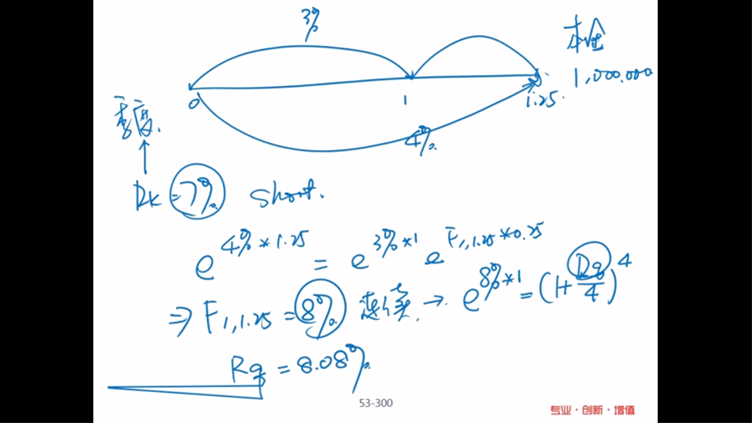 3%
本金
1,000,000
0
1
1.25
4%
季度
Rk = 7% short.
e^{4%*1.25} = e^{3%*1} e^{F_{1,1.25}*0.25}
⇒ F_{1,1.25} = 8% 连续 → e^{8%*1} = (1+Rq/4)^4
Rq = 8.08%
53-300
专业·创新·增值